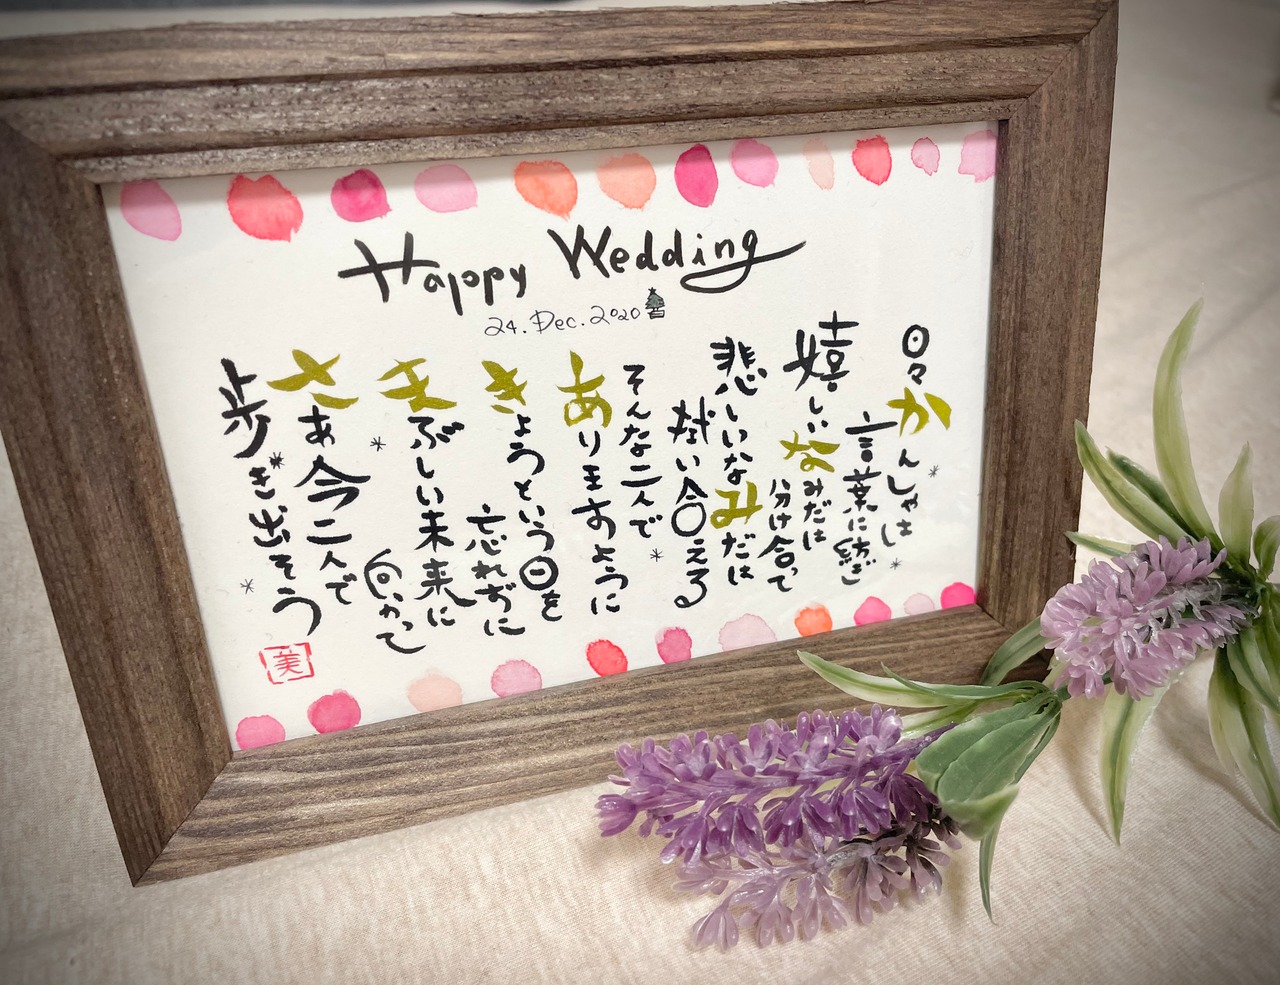 Happy Wedding
24. Dec. 2020
日々かんしゃは
言葉に紡ぎ
嬉しいなみだは
分け合って
悲しいなみだは
拭い合える
そんな二人で
ありますように
きょうという日を
忘れずに
まぶしい未来に
向かって
さぁ今二人で
歩き出そう
美